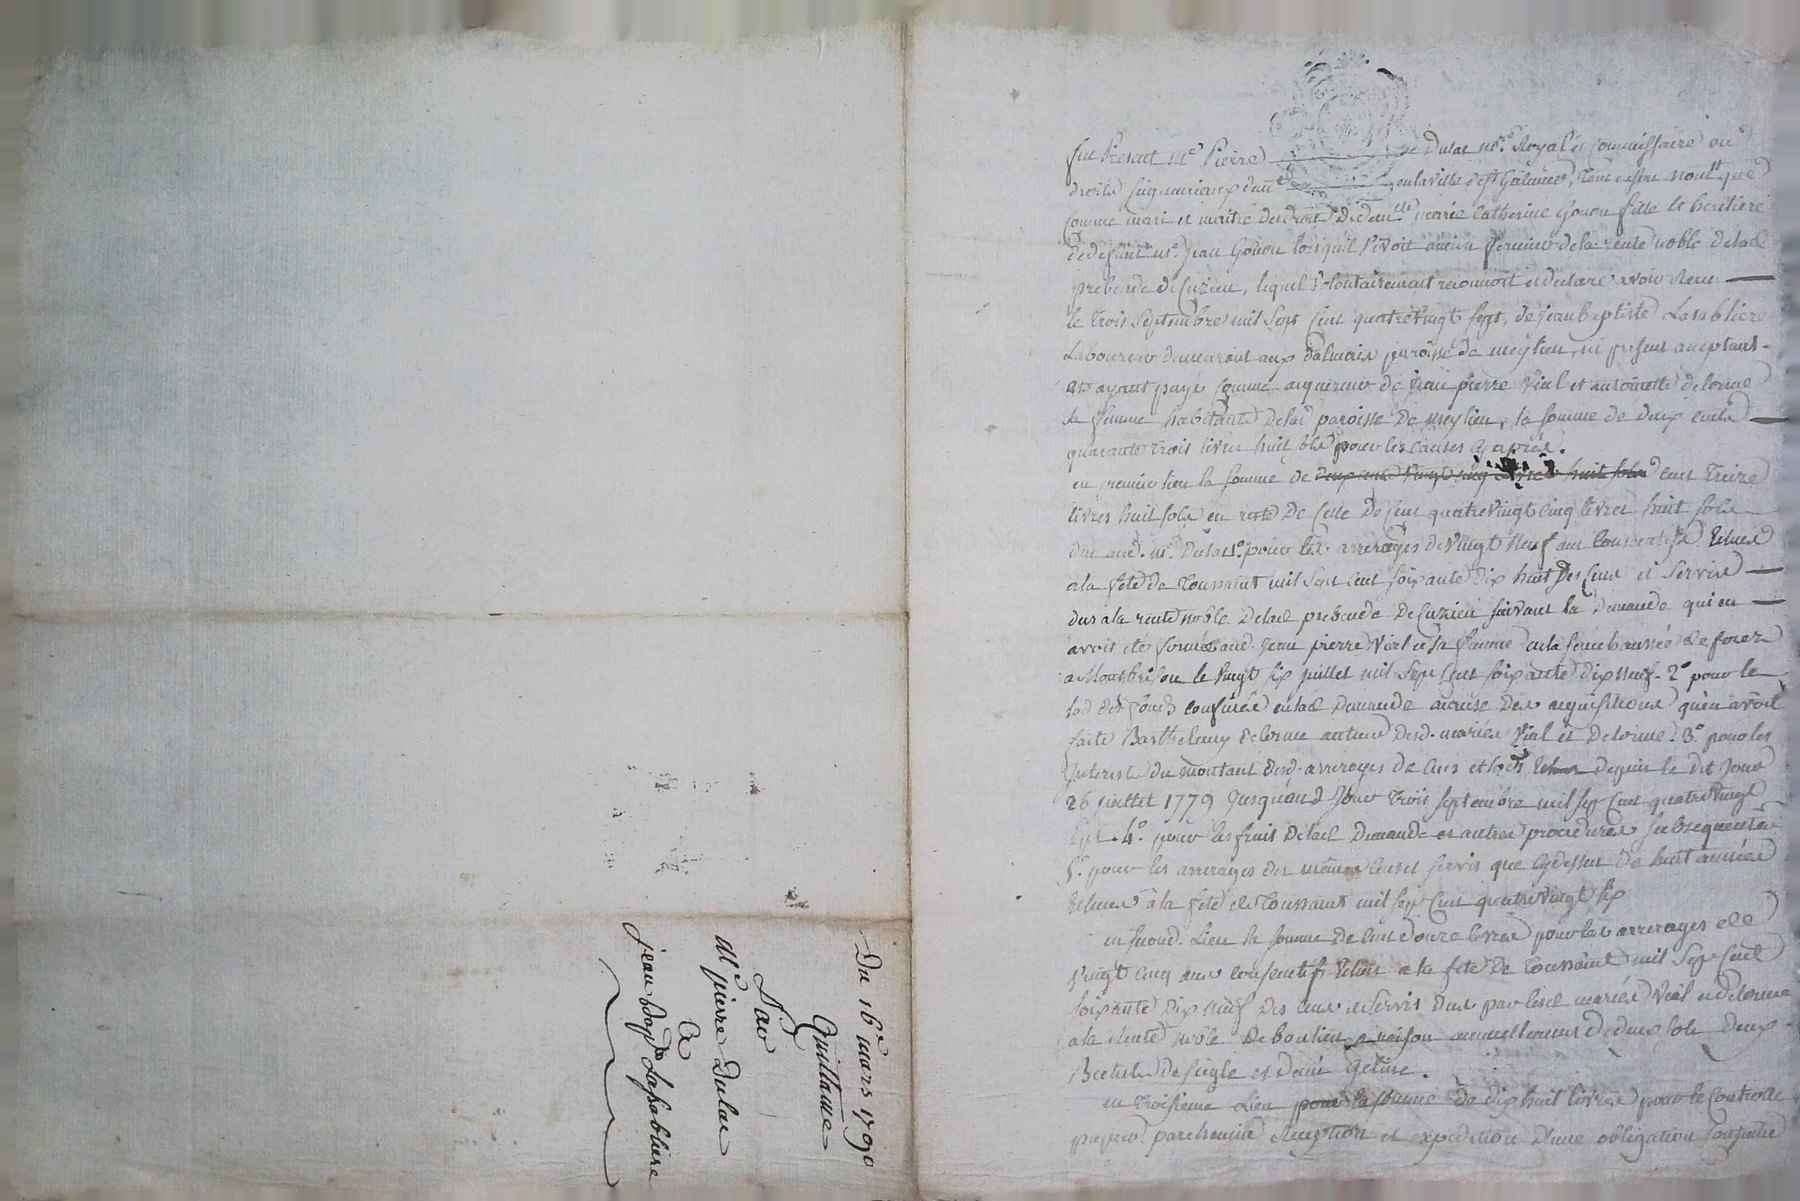 Du 16e mars 1790
Quittance
Par
Me pierre Dulac
A
jean Bapte Lasabliere
fut Present Me Pierre Dulac nore Royal et Commissaire en
droits seigneuriaux demt en la ville de st Galmier, tant en son nom que
comme mari et maitre des droits de demlle marie Catherine Gonon fille et heritiere
de defunt me jean Gonon lorsqu'il vivoit ancien fermier de la rente noble de lad
prebende de Cuzieu, lequel volontairement reconnoit et declare avoir Receu
le trois septembre mil sept cent quatre vingt sept, de jean baptiste Lasabliere
Laboureur demeurant aux paroisse de meylieu, ici present acceptant
et ayant payé comme acquereur de jean pierre Vial et antoinette delorme
sa femme habitants de lad paroisse De meylieu, la somme de deux cents
quarante trois livres huit sols pour les causes cy après.
en premier lieu la somme de deux cent vingt cinq livres huit sols cent treize
livres huit sols en reste De celle De cent quatre vingt cinq livres huit sols
due aud. me Dulac 1o pour les arrerages de vingt neuf ans consecutifs Echus
a la fete de Toussaint mil sept cent soixante dix huit des cens et servis
dus a la rente noble De lad prebende De Cuzieu suivant la demande qui en
avoit eté formée aud. jean pierre Vial et sa femme en la senechaussée de forez
a Montbrison le vingt six juillet mil sept cent soixante dix neuf. 2o pour le
lod des fonds en lad Demande a cause des acquisitions qu'en avoit
faite Barthelemy delorme auteur desd. mariés Vial et Delorme. 3o pour les
Interest du montant desd. arrerages de cens et lods Echus depuis le dit jour
26 juillet 1779 jusqu'aud jour trois septembre mil sept cent quatre vingt
sept. 4o pour les frais de lad Demande et autres procedures subsequentes
5o pour les arrerages des mêmes cens et servis que cy dessus De huit années
Echues à la fete de Toussaint mil sept cent quatre vingt six
en second Lieu la somme De cent douze livres pour les arrerages de
vingt cinq ans consecutifs Echus a la fete De Toussaint mil sept cent
soixante dix neuf des cens et servis dus par lesd mariés Vial et delorme
a la Rente noble De a raison annuellement de deux sols deux
de seigle et demi Geline.
en troisieme Lieu pour la somme de dix huit livres pour le Controlle
papier parchemin reception et expedition d'une obligation consentie